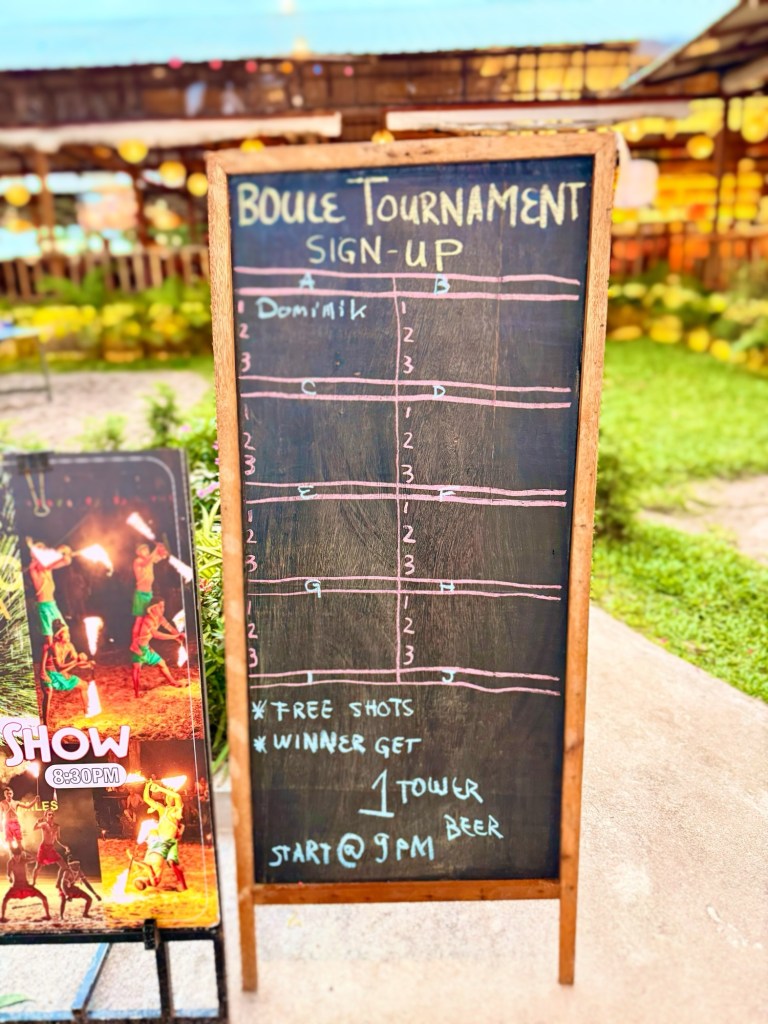 BOULE TOURNAMENT
SIGN-UP
A B
1 Dominik 1
2 2
3 3
C D
1 1
2 2
3 3
E F
1 1
2 2
3 3
G H
1 1
2 2
3 3
I J
* FREE SHOTS
* WINNER GET
1 TOWER
BEER
START @ 9 PM
SHOW
8:30PM
LES